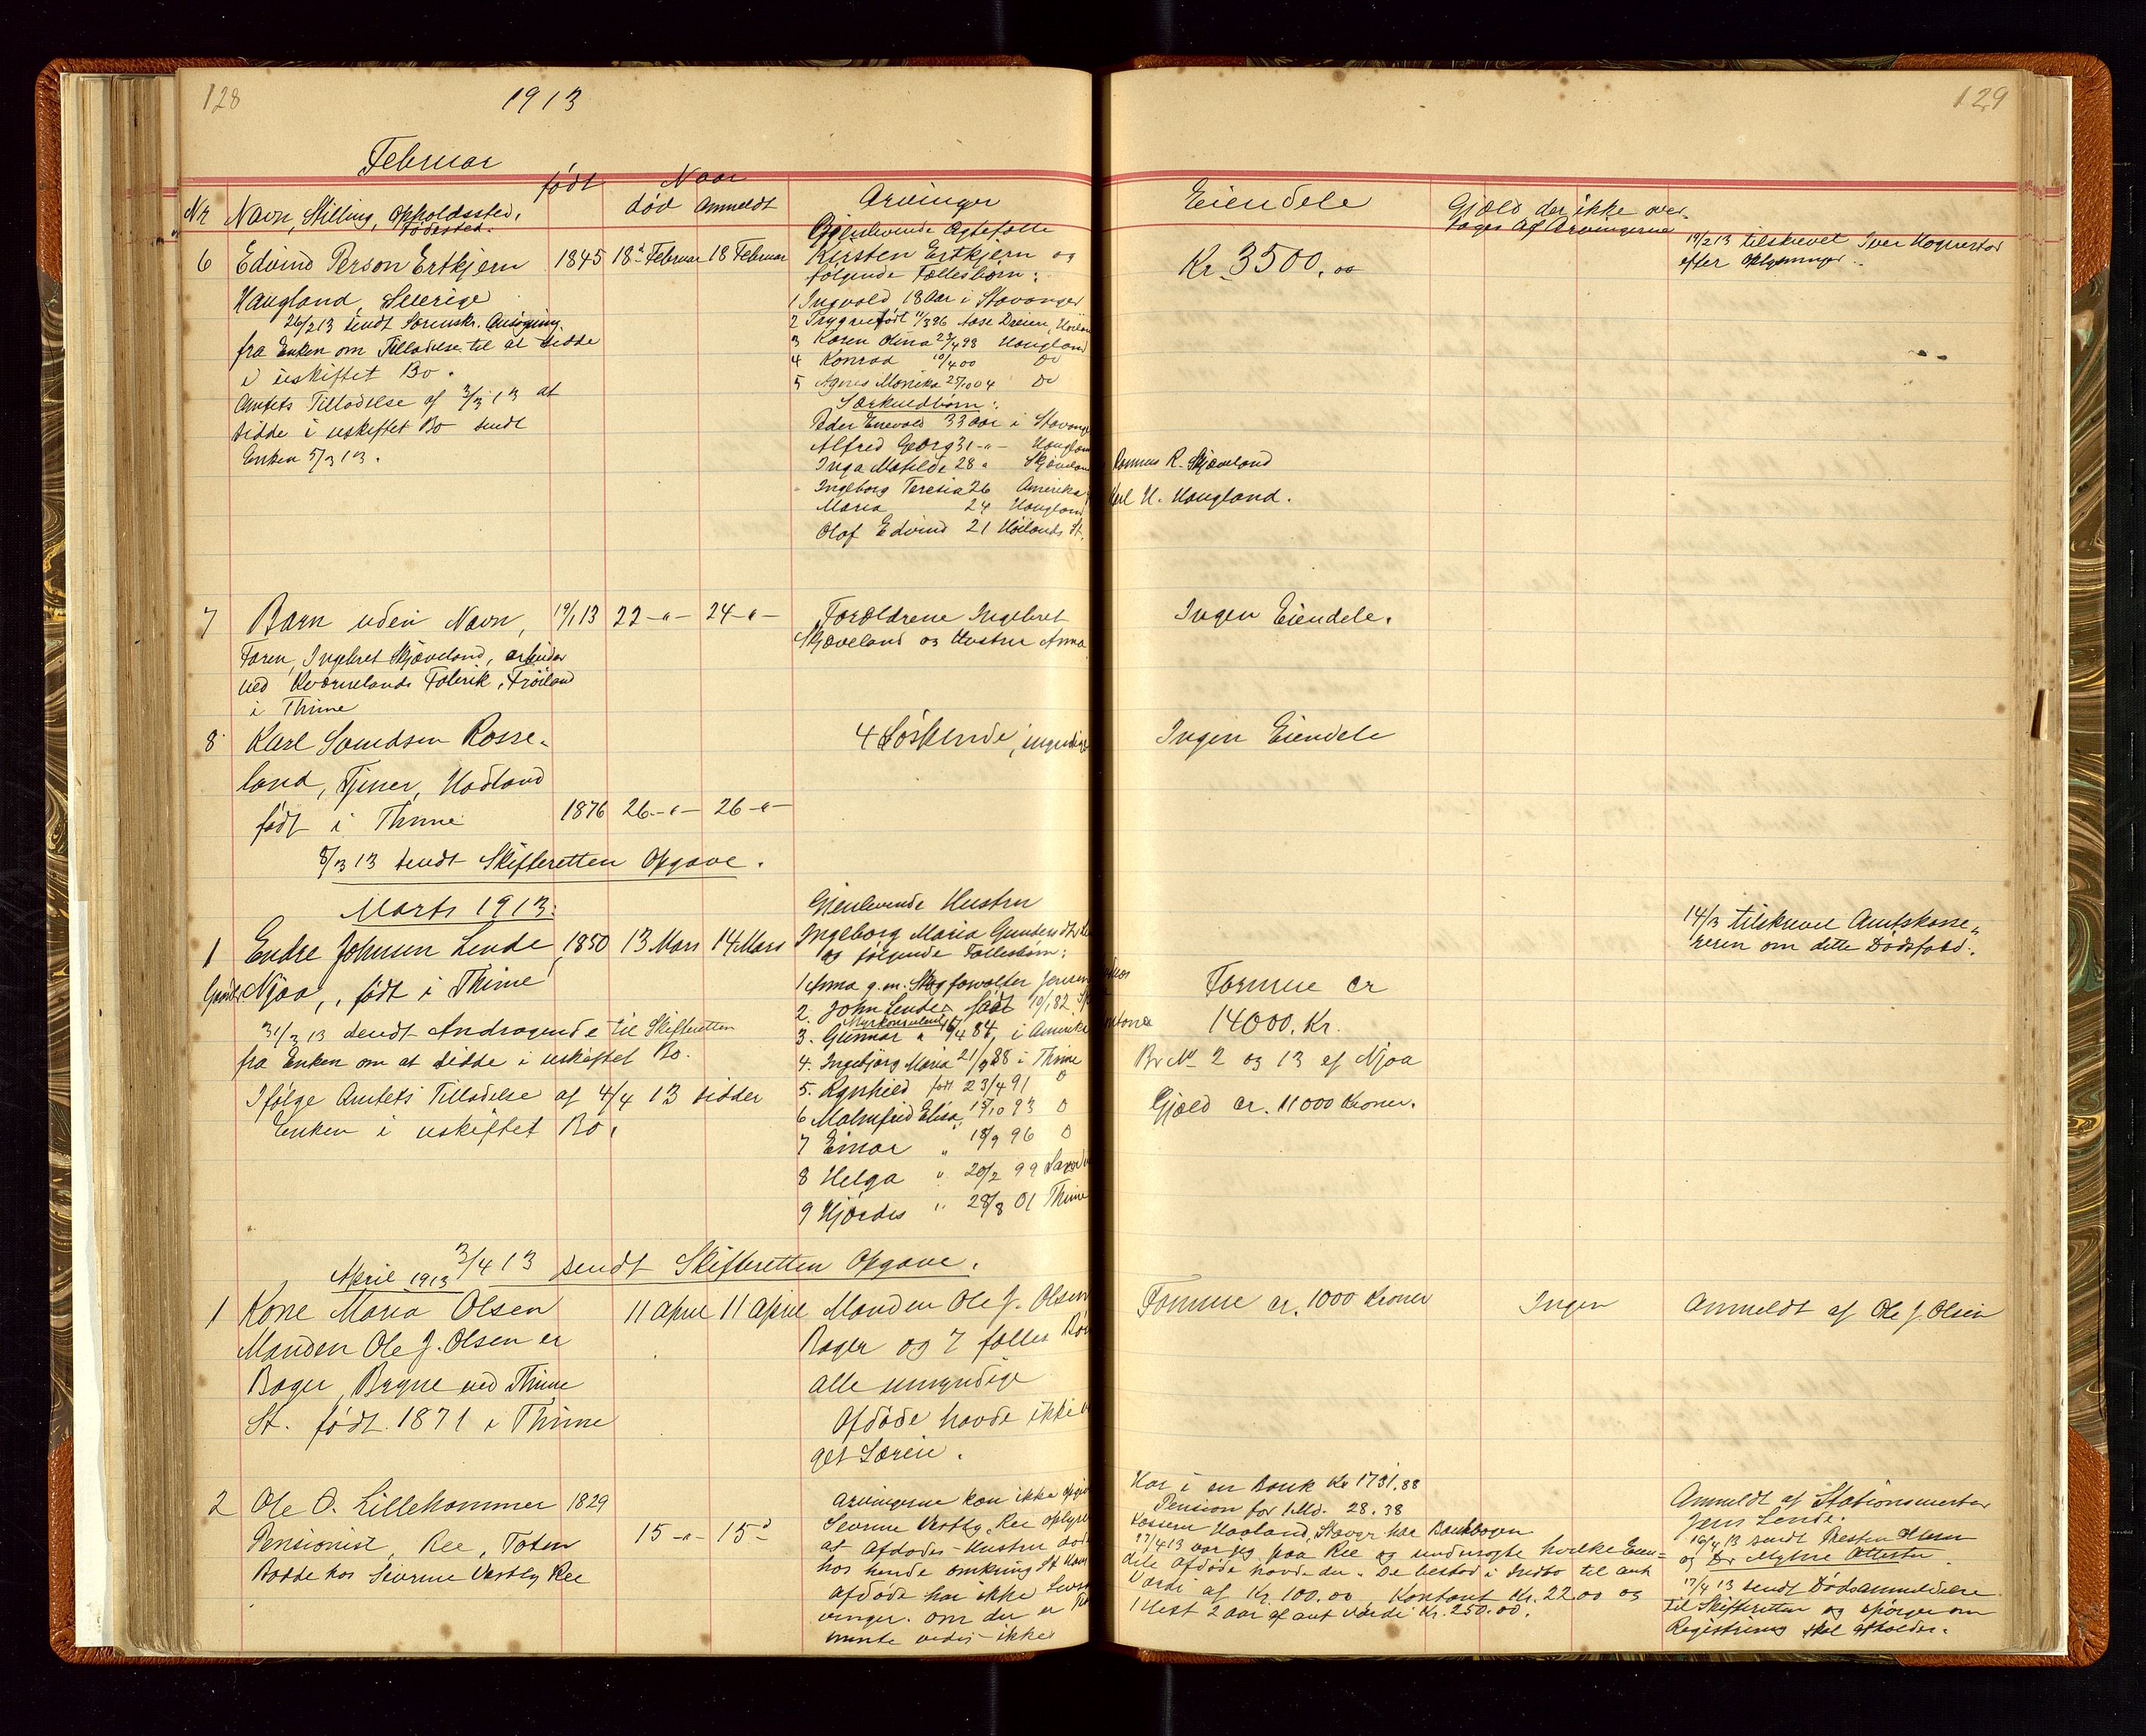 128
1913
Februar
født
Naar
Nr Navn, Stilling, Opholdssted,
Fødested.
død Anmeldt
Arvinger
6 Edvind Person Ertkjern
1845 18 Februar 18 Februar
Haugland, Sverige
26/2 13 sendt Sorenskr. Ansøgning
fra Enken om Tilladelse til at sidde
i uskiftet Bo.
Amtets Tilladelse af 3/3 13 at
sidde i uskiftet Bo sendt
Enken 5/3 13.
Gjenlevende Ægtefælle
Kirsten Ertkjern og
følgende Fællesbørn:
1 Ingvald 18 Aar i Stavanger
2 Trygve født 11/3 96
3 Karen Olina 23/4 98 Haugland
4 Konrad 10/4 00 Do
5 Agnes Monika 25/10 04 Do
Særkuldbørn:
Peder Enevold 33 aar i Stavanger
Alfred Georg 31 -"- Hauglan
Inga Matilde 28 " Skjævelan
Ingeborg Teresia 26 Amerika
Maria 24 Haugland
Olaf Edvind 21 Høilands St.
7 Barn uden Navn,
19/1 13 22 -"- 24 -"-
Faren, Ingebret Skjæveland, arbeider
ved Kværnelands Fabrik, Frøiland
i Thime
Forældrene Ingebret
Skjæveland og Hustru Anna
8 Karl Samdsen Rosse-
land, Tjener, Hadland
født i Thime
1876 26 -"- 26 -"-
4 Søskende,
8/3 13 sendt Skifteretten Opgave.
Marts 1913:
1 Endre Johnsen Lende
1850 13 Mars 14 Mars
Gaardbr Njaa, født i Thime
31/3 13 sendt Andragende til Skifteretten
fra Enken om at sidde i uskiftet Bo.
Ifølge Amtets Tilladelse af 4/4 13 sidder
Enken i uskiftet Bo.
Gjenlevende Hustru
Ingeborg Maria
og følgende Fællesbørn:
1 Anna g.m. Skogforvalter Jensen
2. John Lende, født 10/1 82
Myrkonsulent
3. Gunnar " 16/4 84, i Amerika
4. Ingebjørg Maria 21/9 88 i Thime
5. Ragnhild født 23/4 91 D
6 Malmfrid Elisa 15/10 93 D
7 Einar " 18/9 96 D
8 Helga " 20/2 99
9 Hjørdis " 28/8 01 Thime
3/4 13 sendt Skifteretten Opgave.
April 1913
1 Kone Maria Olsen
11 April 11 April
Manden Ole J. Olsen er
Bager, Bryne ved Thime
St. født 1871 i Thime
Manden Ole J. Olsen
Bager og 7 fælles Bør
alle umyndige
Afdøde havde ikke
get Særeie.
2 Ole O. Lillehammer 1829
15 -"- 15
Pensionist, Ree, Toten
Bodde hos Severine Vestly Ree
Arvingerne kan ikke opgiv
Severine Vestly, Ree oplyser
at Afdødes Hustru døde
hos hende omkring St. Hans
Afdøde har ikke Livsar
vinger. om der er
mente vides ikke
129
Eiendele
Gjæld der ikke over-
tages Af Arvingerne
19/2 13 tilskrevet Iver Hognestad
efter oplysninger.
Kr. 3500,00
Rasmus R. Skjæveland
Karl H. Haugland.
Ingen Eiendele.
Ingen Eiendele
14/3 tilskrevet Amtskasse-
reren om dette Dødsfald.
Formue cr
14000. Kr.
Br No 2 og 13 af Njaa
Gjæld cr. 11000 Kroner.
Formue cr. 1000 Kroner
Ingen
Anmeldt af Ole J. Olsen
Har i en Bank Kr 1731.88
Pension for 1 Md. 28.38
Kasserer Haaland, Stavgr har Bankbogen
17/4 13 var jeg paa Ree og undersøgte hvilke Eien-
dele afdøde havde der. De bestod i Indbo til ant
Værdi af Kr. 100.00 Kontant Kr. 22.00 og
1 Hest 2 aar af ant Værdi Kr. 250.00.
Anmeldt af Stationsmester
Jens Lende.
16/4 13 sendt Presten
og Dr Attester
17/4 13 sendt Dødsanmeldelse
til Skifteretten og spørger om
Registrering skal afholdes.